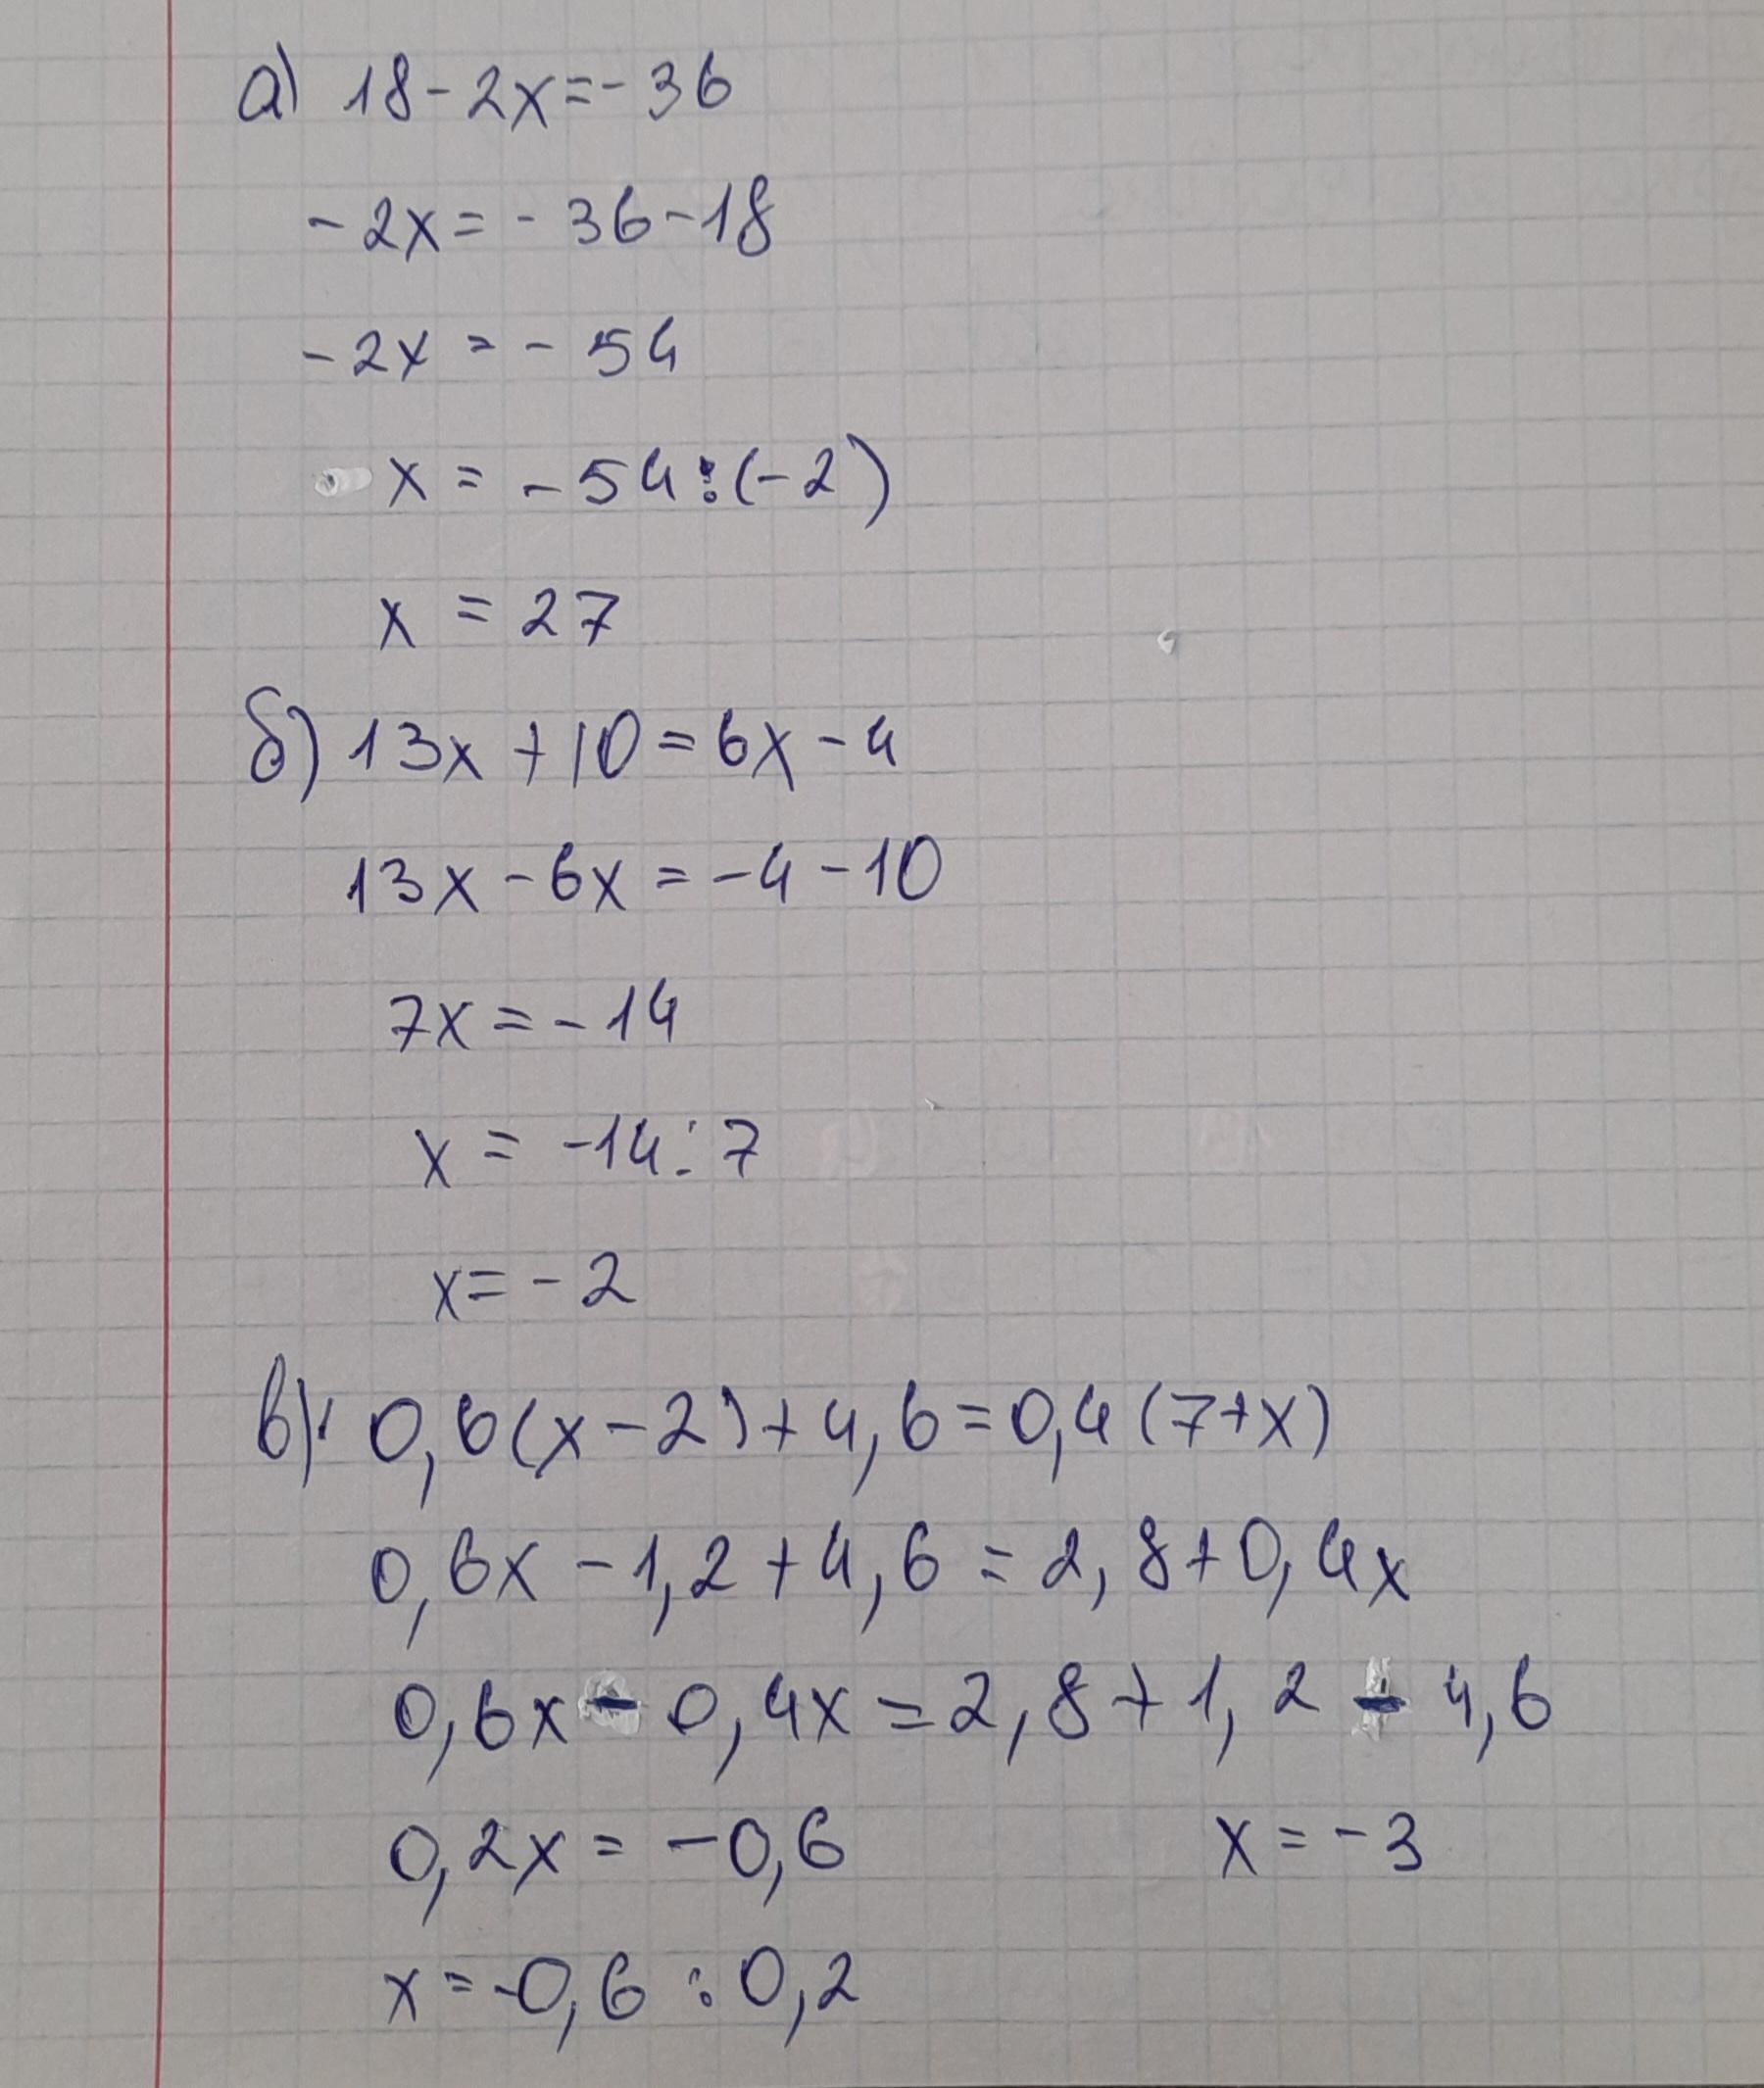 а) 18-2x=-36
-2x=-36-18
-2x=-54
x=-54:(-2)
x=27
б) 13x+10=6x-4
13x-6x=-4-10
7x=-14
x=-14:7
x=-2
в) 0,6(x-2)+4,6=0,4(7+x)
0,6x-1,2+4,6=2,8+0,4x
0,6x-0,4x=2,8+1,2-4,6
0,2x=-0,6 x=-3
x=-0,6:0,2